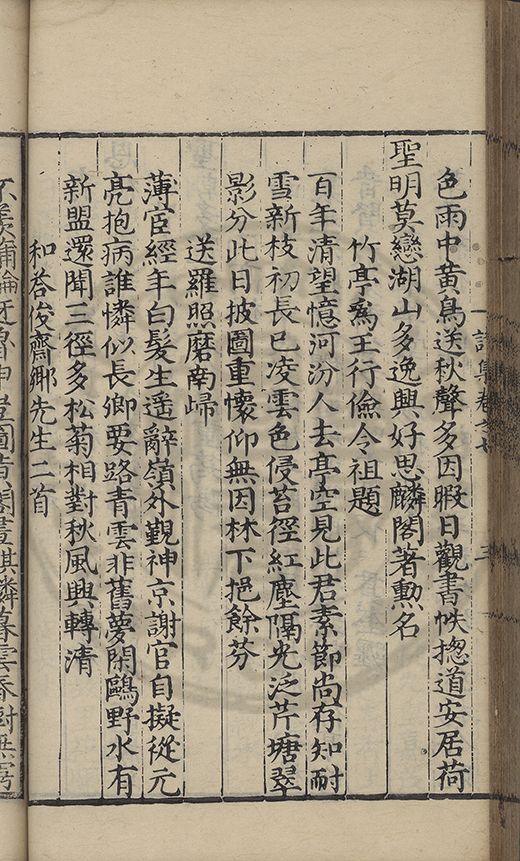 詩集卷之七
三
色雨中黄鳥送秋聲多因暇日觀書帙揔道安居荷
聖明莫戀湖山多逸興好思麟閣著勲名
竹亭爲王行儉令祖題
百年清望憶河汾人去亭空見此君素節尚存知耐
雪新枝初長已凌雲色侵苔徑紅塵隔光泛芹塘翠
影分此日披圖重懷仰無因林下挹餘芬
送羅照磨南歸
薄宦經年白髮生遥辭嶺外覲神京謝官自擬從元
亮抱病誰憐似長卿要路青雲非舊夢閑鷗野水有
新盟還聞三徑多松菊相對秋風興轉清
和荅俊齋鄉先生二首